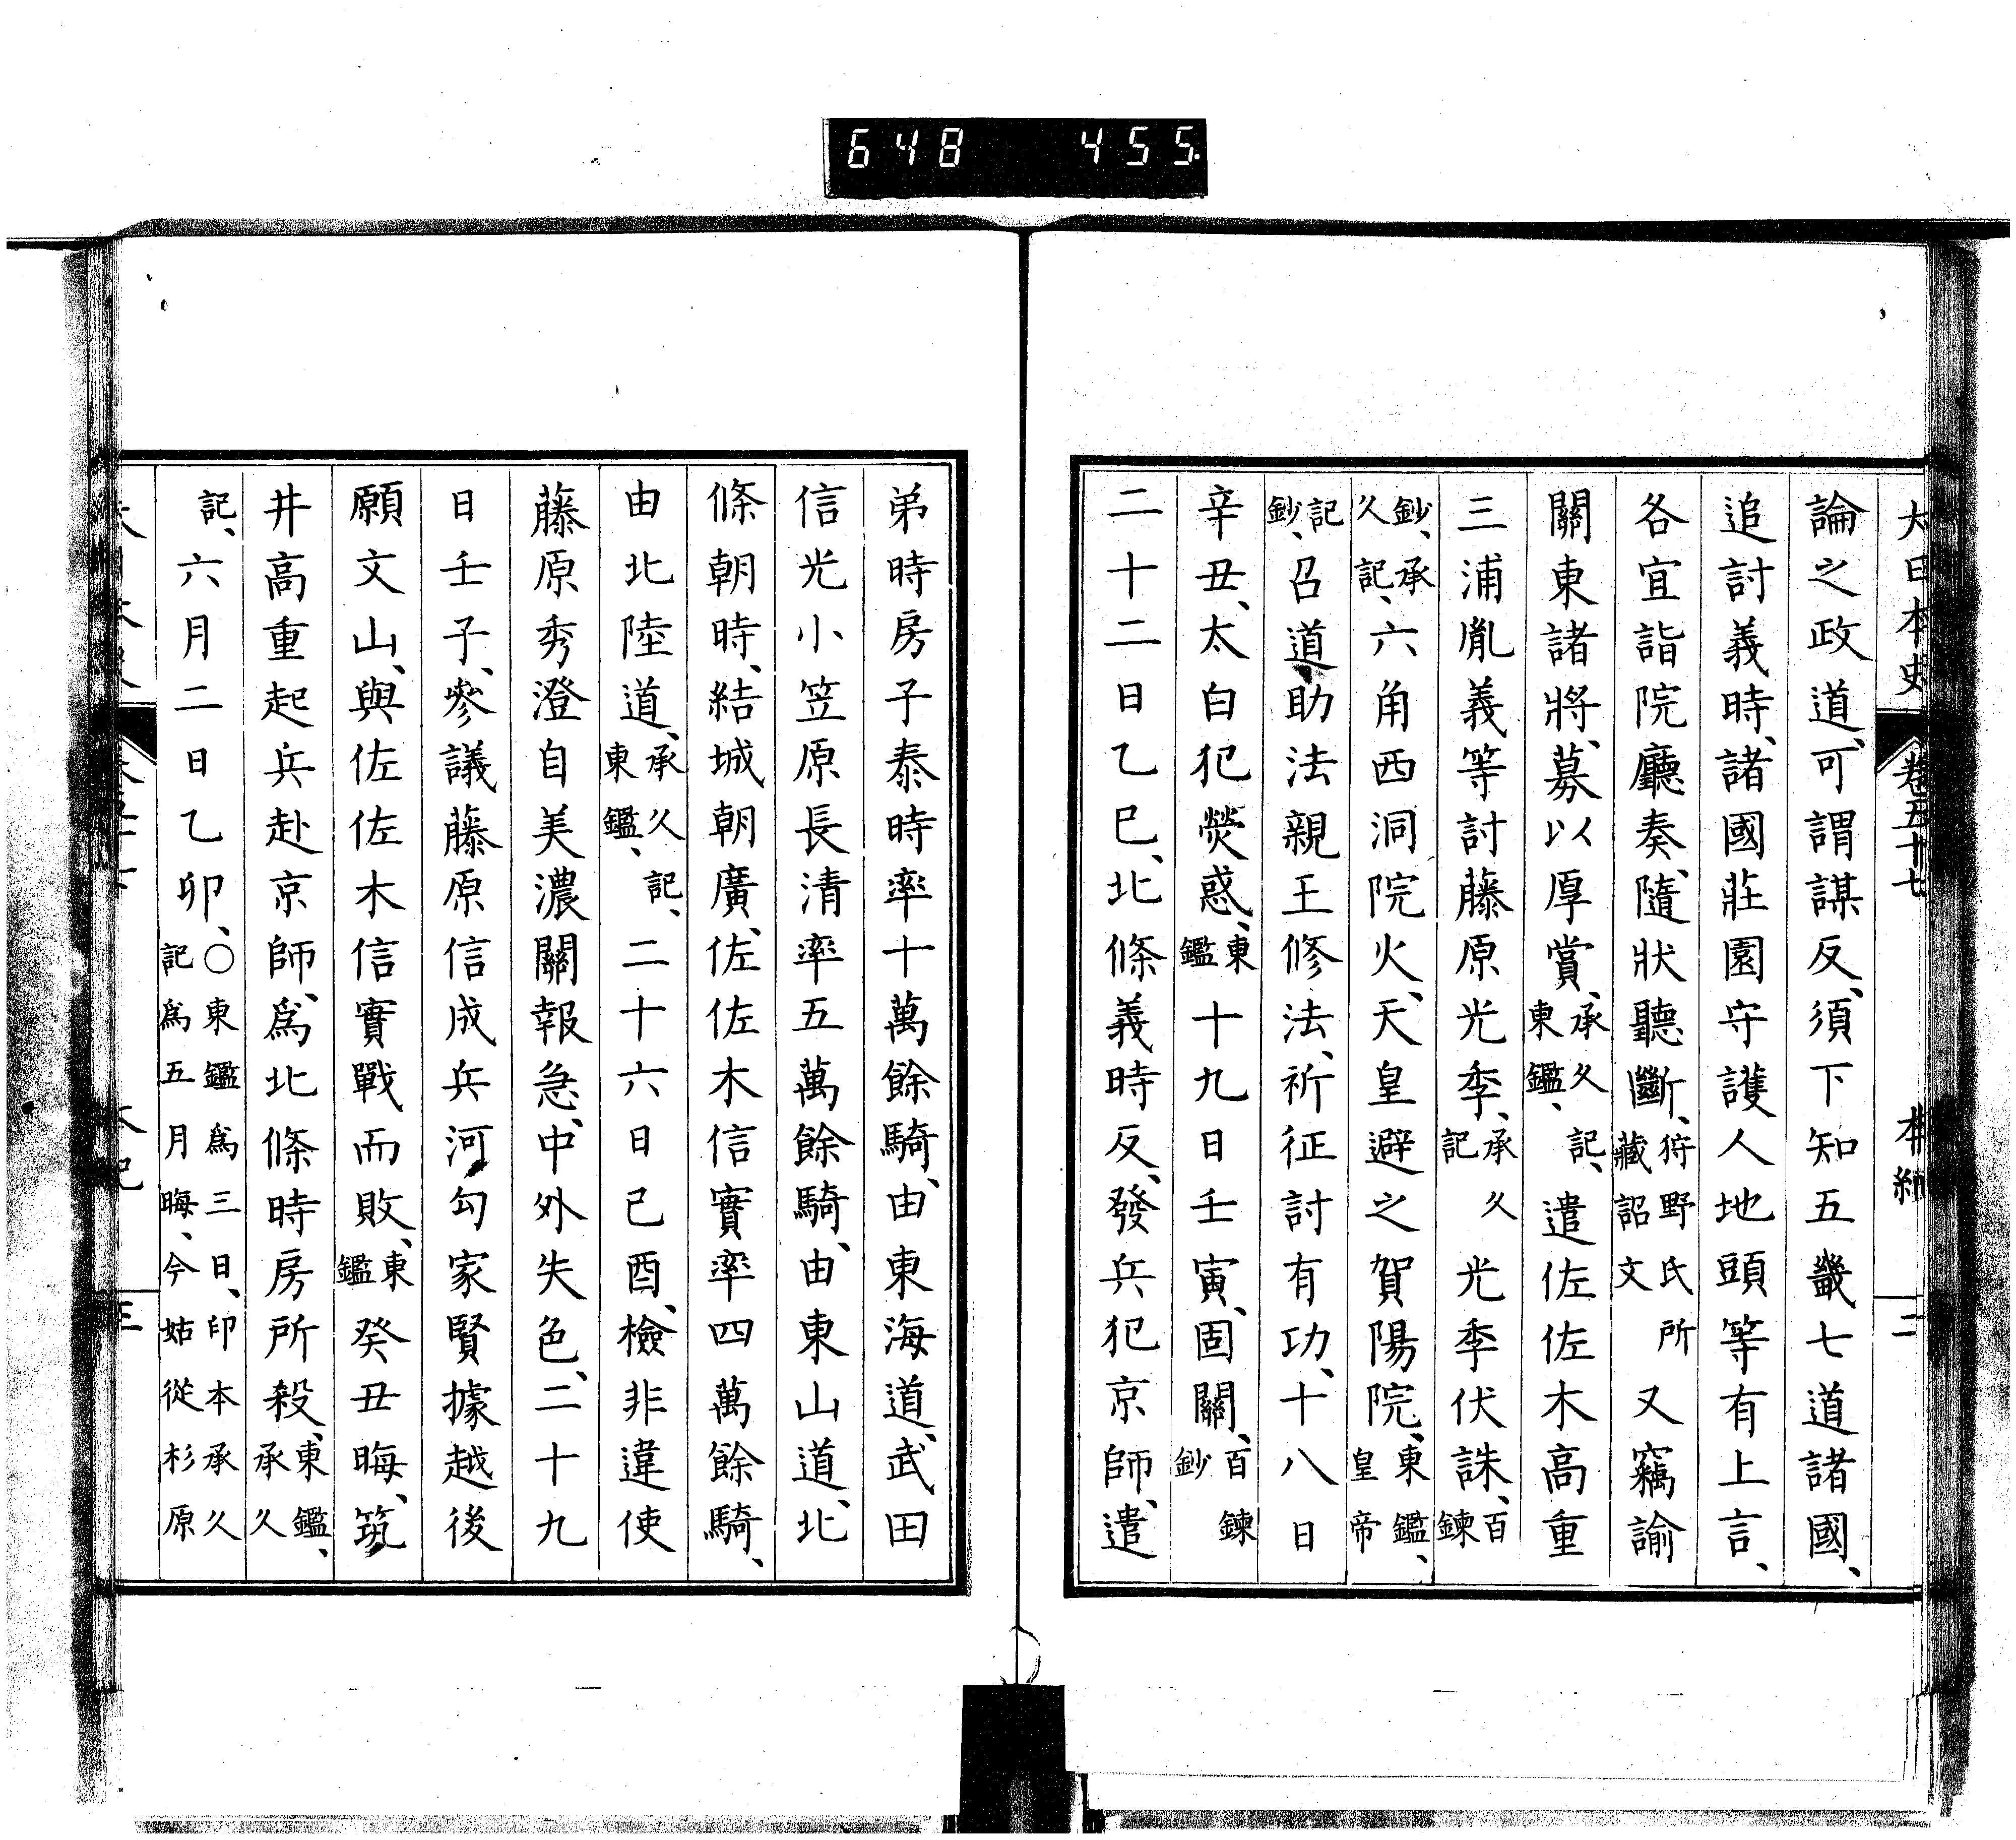 648 455.
大日本史 卷五十七 本紀 二
論之政道、可謂謀反、須下知五畿七道諸國、
追討義時、諸國莊園守護人地頭等有上言、
各宜詣院廳奏、隨狀聽斷、狩野氏所藏詔文又竊諭
關東諸將、募以厚賞、承久記、東鑑、遣佐佐木高重
三浦胤義等討藤原光季、承久記光季伏誅、百鍊
鈔、承久記、六角西洞院火、天皇避之賀陽院、東鑑、皇帝
記鈔、召道助法親王修法、祈征討有功、十八日
辛丑、太白犯熒惑、東鑑十九日壬寅、固關、百鍊鈔
二十二日乙巳、北條義時反、發兵犯京師、遣
弟時房子泰時率十萬餘騎、由東海道、武田
信光小笠原長清率五萬餘騎、由東山道、北
條朝時、結城朝廣、佐佐木信實率四萬餘騎、
由北陸道、承久記、東鑑、二十六日己酉、檢非違使
藤原秀澄自美濃關報急、中外失色、二十九
日壬子、參議藤原信成兵河勾家賢據越後
願文山、與佐佐木信實戰而敗、東鑑癸丑晦、筑
井高重起兵赴京師、爲北條時房所殺、東鑑、承久
記、六月二日乙卯、〇東鑑爲三日、印本承久記爲五月晦、今姑從杉原